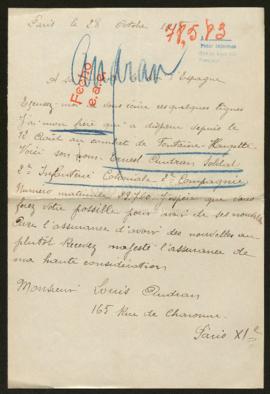 Paris le 28 Octobre
78,583
Andran
A sa l'Espagne
Fecho
e.a.c.
Excusez moi vous écire ces quelques lignes
J'ai mon père qui a disparu depuis le
12 Avril au combat de Fontaine-Houzette
Voici son nom Ernest Andran Soldat
2e Infanterie Coloniale 2e Compagnie
Numéro matricule J'espère que vous
ferez votre possible pour avoir de ses nouvelles
l'assurance d'avoir des nouvelles au
plutôt Recevez majesté l'assurance de
ma haute considération
Monsieur Louis Andran
165 Rue de Charonne
Paris XIe